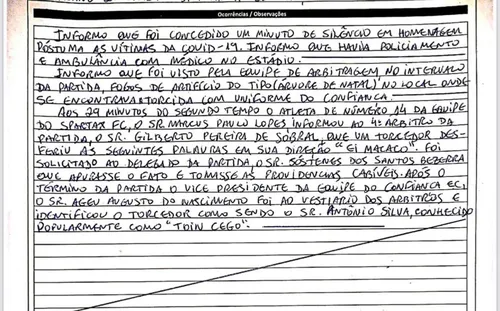 Ocorrências / Observações
INFORMO QUE FOI CONCEDIDO UM MINUTO DE SILÊNCIO EM HOMENAGEM
PÓSTUMA AS VÍTIMAS DA COVID-19. INFORMO QUE HAVIA POLICIAMENTO
E AMBULÂNCIA COM MÉDICO NO ESTÁDIO.
INFORMO QUE FOI VISTO PELA EQUIPE DE ARBITRAGEM NO INTERVALO
DA PARTIDA, FOGOS DE ARTIFÍCIO DO TIPO (ÁRVORE DE NATAL) NO LOCAL ONDE
SE ENCONTRAVA TORCIDA COM UNIFORME DO CONFIANÇA.
AOS 29 MINUTOS DO SEGUNDO TEMPO O ATLETA DE NÚMERO 14 DA EQUIPE
DO SPARTAX FC, O SR. MARCUS PAULO LOPES INFORMOU AO 4º ARBITRO DA
PARTIDA, O SR. GILBERTO PEREIRA DE SOBRAL, QUE UM TORCEDOR DES-
FERIU AS SEGUINTES PALAVRAS EM SUA DIREÇÃO "EI MACACO". FOI
SOLICITADO AO DELEGADO DA PARTIDA, O SR. SÓSTENES DOS SANTOS BEZERRA
QUE APURASSE O FATO E TOMASSE AS PROVIDENCIAS CABÍVEIS. APÓS O
TÉRMINO DA PARTIDA O VICE PRESIDENTE DA EQUIPE DO CONFIANÇA EC,
O SR. AGEU AUGUSTO DO NASCIMENTO FOI AO VESTIÁRIO DOS ARBITROS E
IDENTIFICOU O TORCEDOR COMO SENDO O SR. ANTÔNIO SILVA, CONHECIDO
POPULARMENTE COMO "TOIN CEGO".